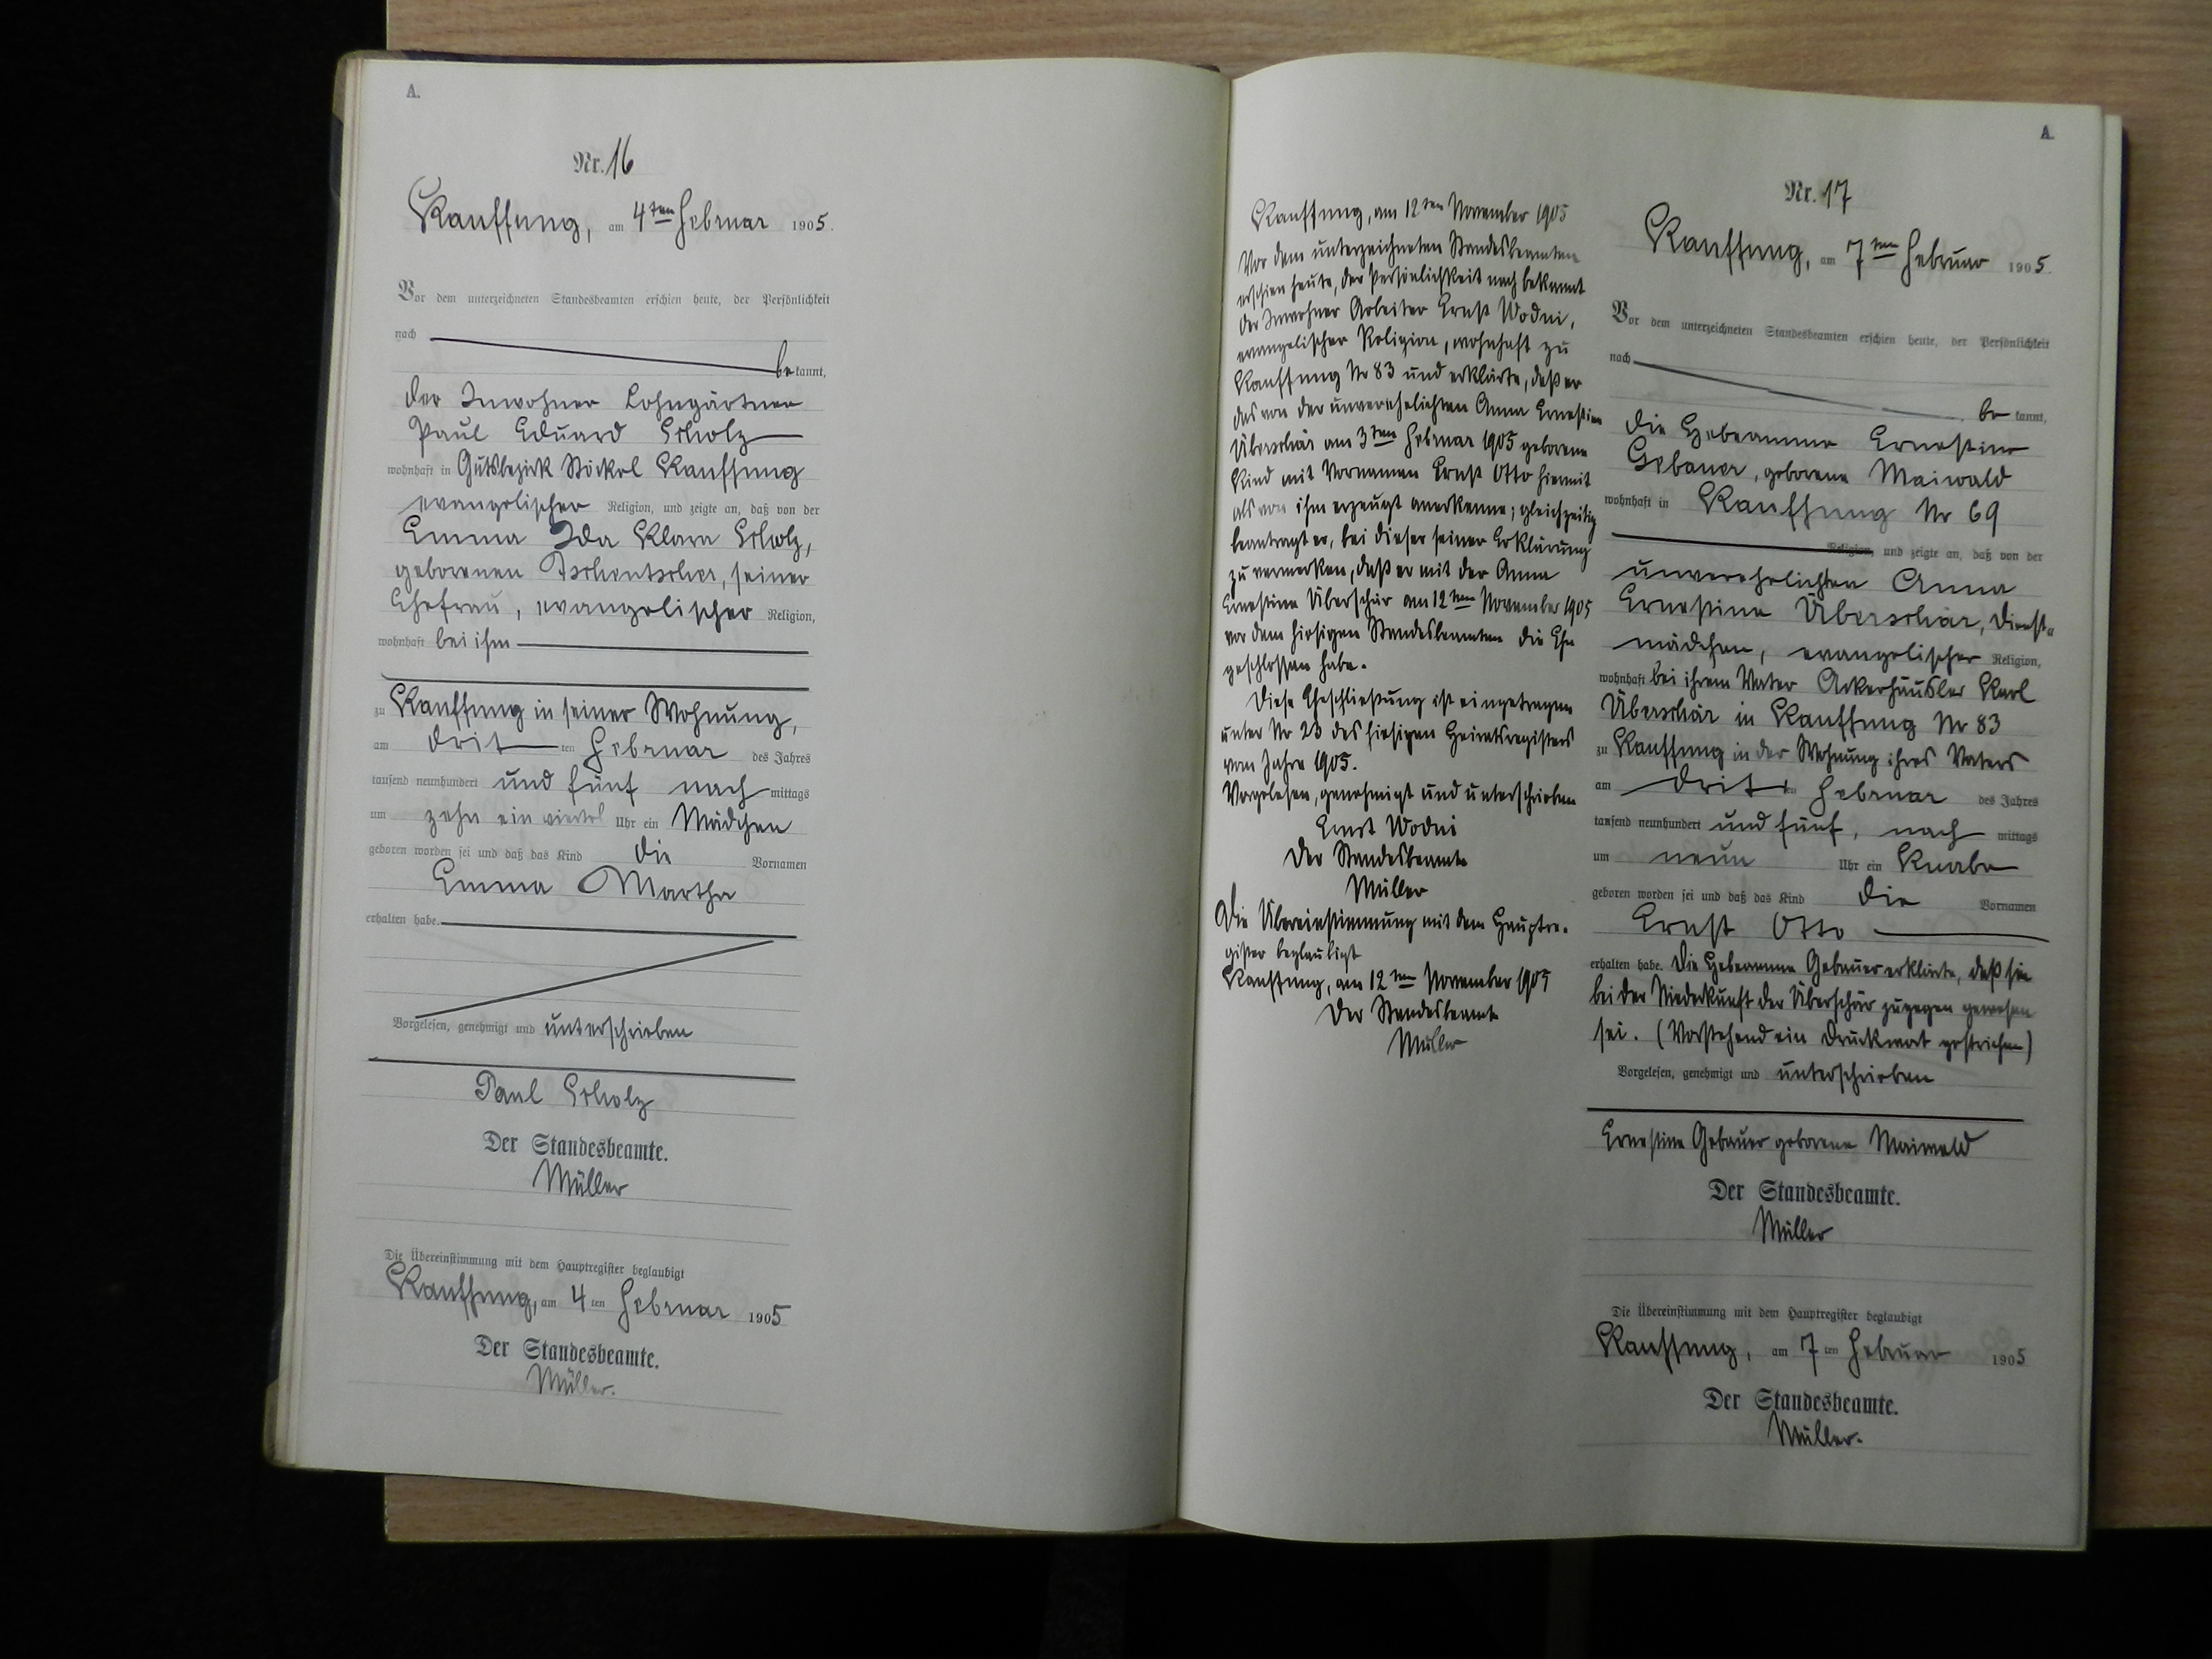 A.
Nr. 16
Kauffung, am 4ten Februar 1905.
Vor dem unterzeichneten Standesbeamten erschien heute, der Persönlichkeit
nach
be kannt,
der Inwohner Lohngärtner
Paul Eduard Scholz
wohnhaft in Gutsbezirk Stöckel Kauffung
evangelischer Religion, und zeigte an, daß von der
Emma Ida Klara Scholz,
geborenen Tschentscher, seiner
Ehefrau, evangelischer Religion,
wohnhaft bei ihm
zu Kauffung in seiner Wohnung,
am drit ten Februar des Jahres
tausend neunhundert und fünf nach mittags
um zehn ein viertel Uhr ein Mädchen
geboren worden sei und daß das Kind die Vornamen
Emma Martha
erhalten habe.
Vorgelesen, genehmigt und unterschrieben
Paul Scholz
Der Standesbeamte.
Müller
Die Übereinstimmung mit dem Hauptregister beglaubigt
Kauffung, am 4 ten Februar 1905
Der Standesbeamte.
Müller.
Kauffung, am 12ten November 1905
Vor dem unterzeichneten Standesbeamten
erschien heute, der Persönlichkeit nach bekannt
der Inwohner Arbeiter Ernst Wodni,
evangelischer Religion, wohnhaft zu
Kauffung Nr 83 und erklärte, daß er
das von der unverehelichten Anna Ernestine
Überschär am 3ten Februar 1905 geborene
Kind mit Vornamen Ernst Otto hiermit
als von ihm erzeugt anerkenne; gleichzeitig
beantragt er, bei dieser seiner Erklärung
zu vermerken, daß er mit der Anna
Ernestine Überschär am 12ten November 1905
vor dem hiesigen Standesbeamten die Ehe
geschlossen habe.
Diese Eheschließung ist eingetragen
unter Nr 23 des hiesigen Heiratsregisters
vom Jahre 1905.
Vorgelesen, genehmigt und unterschrieben
Ernst Wodni
Der Standesbeamte
Müller
Die Übereinstimmung mit dem Hauptre-
gister beglaubigt
Kauffung, am 12ten November 1905
Der Standesbeamte
Müller
A.
Nr. 17
Kauffung, am 7ten Februar 1905.
Vor dem unterzeichneten Standesbeamten erschien heute, der Persönlichkeit
nach
be kannt,
die Hebeamme Ernestine
Gebauer, geborene Maiwald
wohnhaft in Kauffung Nr 69
Religion, und zeigte an, daß von der
unverehelichten Anna
Ernestine Überschär, Dienst-
mädchen, evangelischer Religion,
wohnhaft bei ihrem Vater Ackerhäusler Karl
Überschär in Kauffung Nr 83
zu Kauffung in der Wohnung ihres Vaters
am drit ten Februar des Jahres
tausend neunhundert und fünf, nach mittags
um neun Uhr ein Knabe
geboren worden sei und daß das Kind die Vornamen
Ernst Otto
erhalten habe. Die Hebeamme Gebauer erklärte, daß sie
bei der Niederkunft der Überschär zugegen gewesen
sei. (Vorstehend ein Druckwort gestrichen)
Vorgelesen, genehmigt und unterschrieben
Ernestine Gebauer geborene Maiwald
Der Standesbeamte.
Müller
Die Übereinstimmung mit dem Hauptregister beglaubigt
Kauffung, am 7 ten Februar 1905
Der Standesbeamte.
Müller.